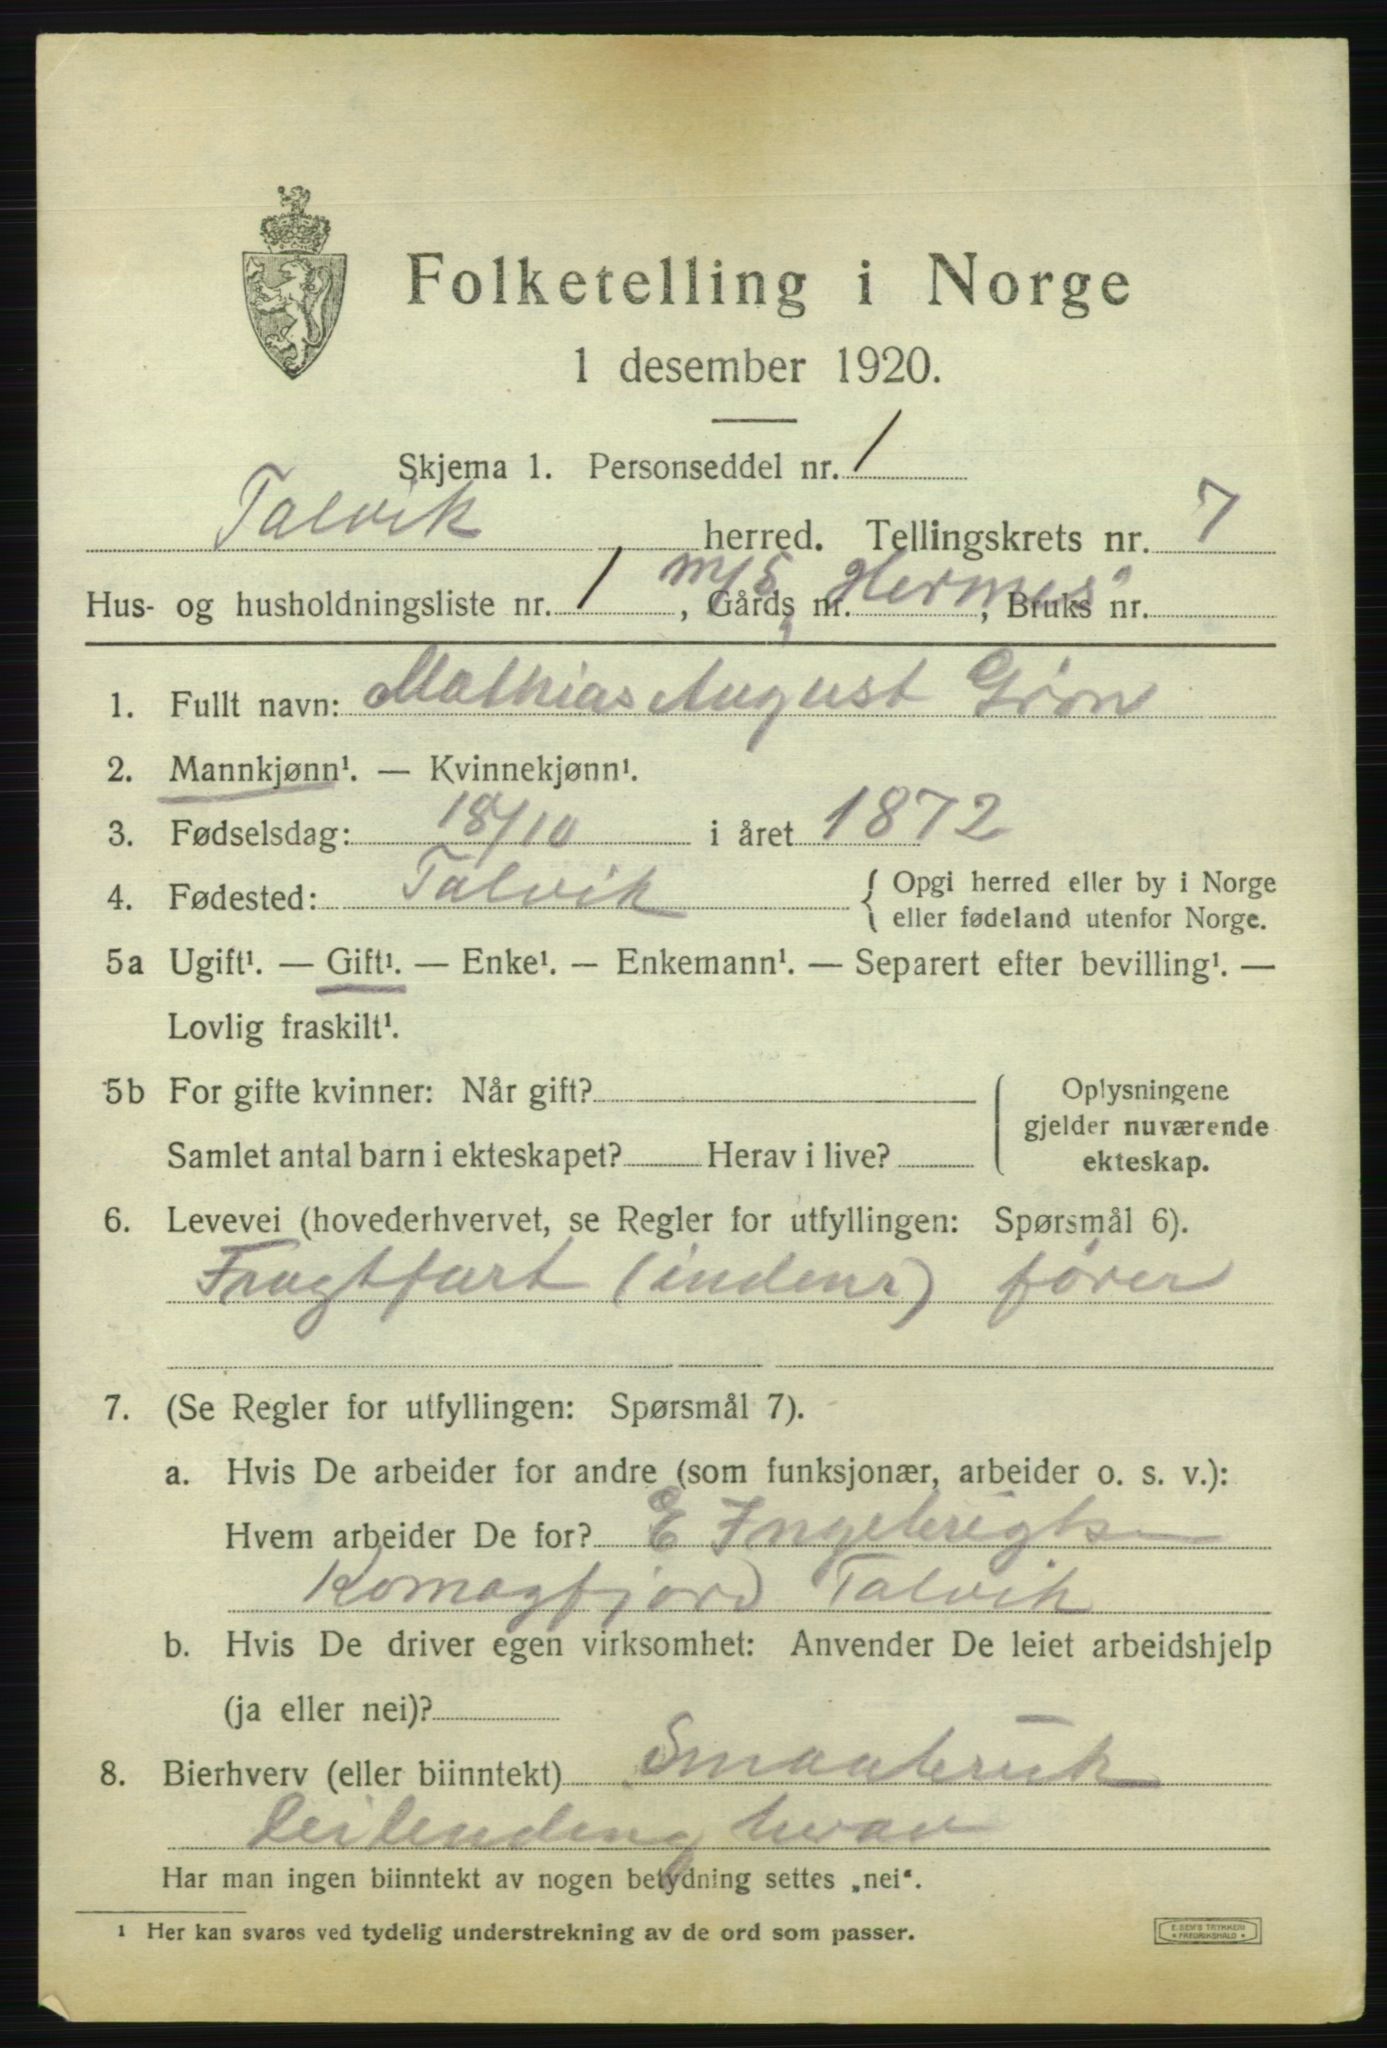 Folketelling i Norge
1 desember 1920.
Skjema 1. Personseddel nr. 1
Talvik herred. Tellingskrets nr. 7
Hus- og husholdningsliste nr. 1, Gårds nr. m/s Hermes, Bruks nr.
1. Fullt navn: Mathias August Grøn
2. Mannkjønn¹. — Kvinnekjønn¹.
3. Fødselsdag: 18/10 i året 1872
4. Fødested: Talvik { Opgi herred eller by i Norge
eller fødeland utenfor Norge.
5a Ugift¹. — Gift¹. — Enke¹. — Enkemann¹. — Separert efter bevilling¹. —
Lovlig fraskilt¹.
5b For gifte kvinner: Når gift? ( Oplysningene
gjelder nuværende
Samlet antal barn i ekteskapet? Herav i live? ekteskap.
6. Levevei (hovederhvervet, se Regler for utfyllingen: Spørsmål 6).
Fragtfart (indenr) fører
7. (Se Regler for utfyllingen: Spørsmål 7).
a. Hvis De arbeider for andre (som funksjonær, arbeider o. s. v.):
Hvem arbeider De for? E Ingebrigts
Komagfjord Talvik
b. Hvis De driver egen virksomhet: Anvender De leiet arbeidshjelp
(ja eller nei)?
8. Bierhverv (eller biinntekt) Smaabruk
Har man ingen biinntekt av nogen betydning settes „nei“.
¹ Her kan svares ved tydelig understrekning av de ord som passer.
E. SEM'S TRYKKERI
FREDRIKSHALD